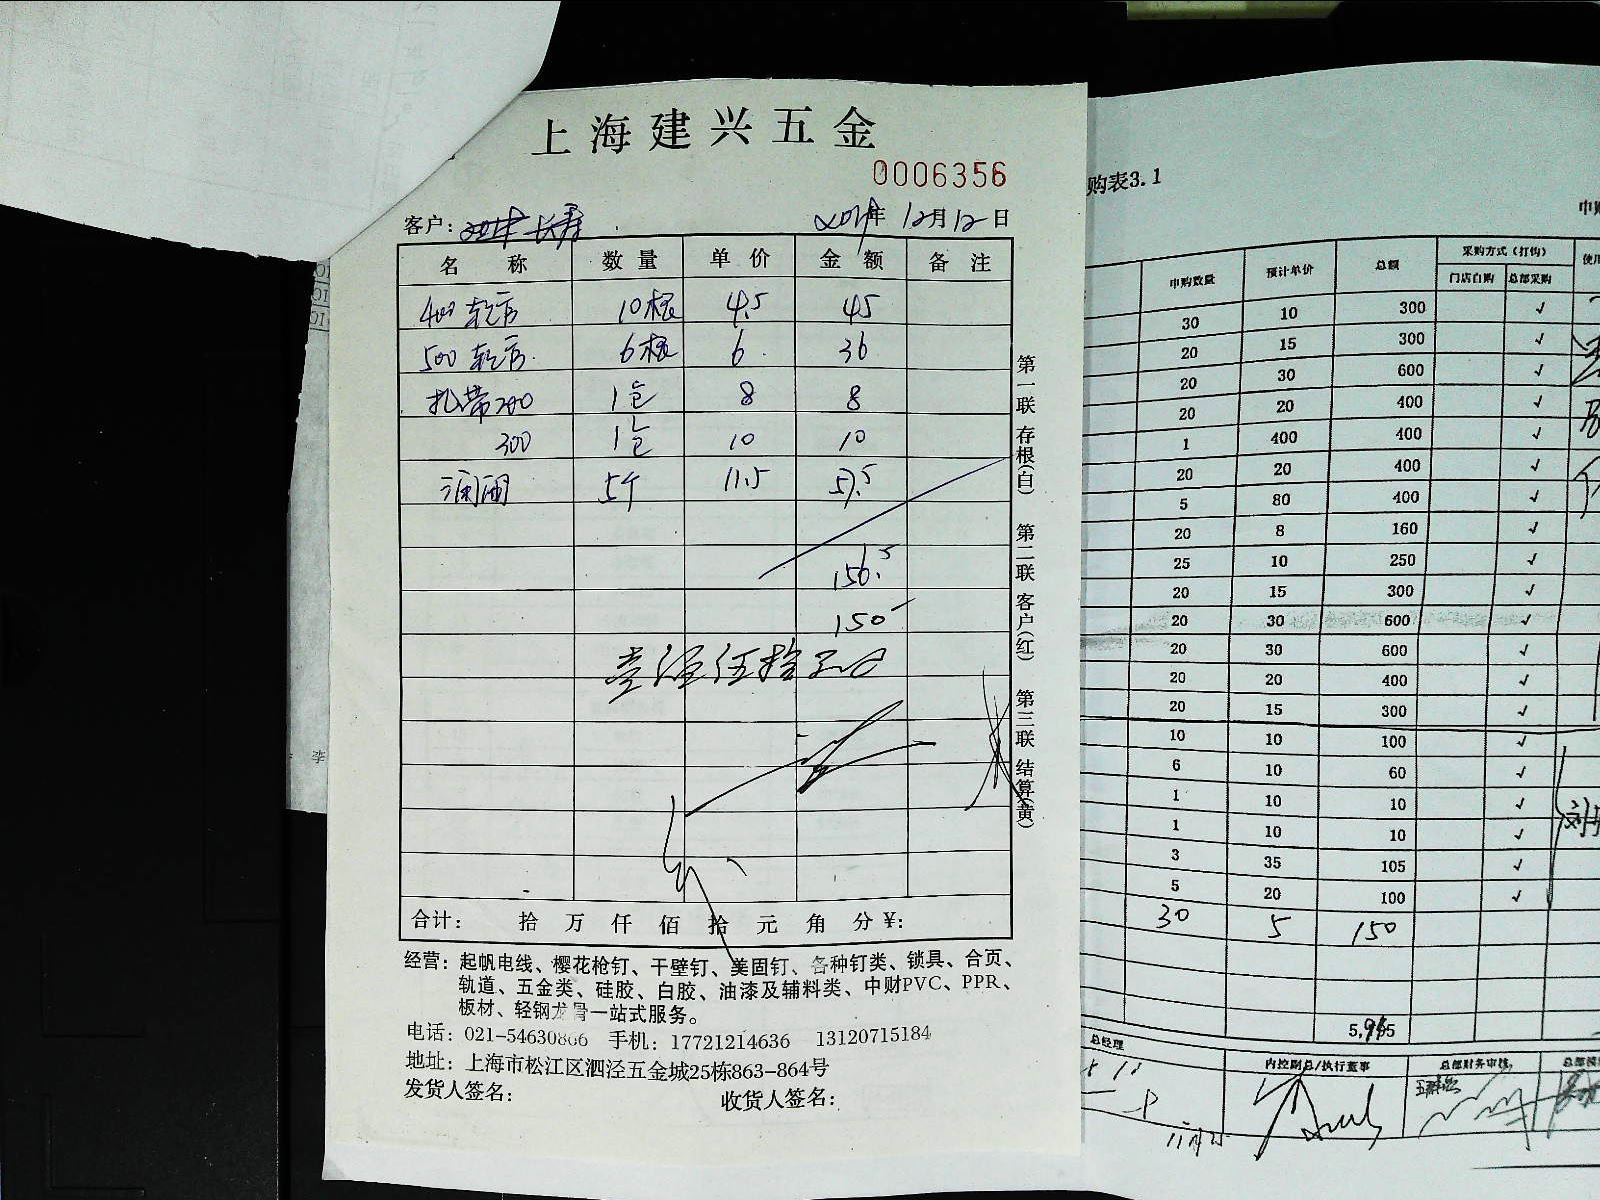 上海建兴五金
0006356
客户: 长寿 年 12月12日
名 称 数 量 单 价 金 额 备 注
400 软管 10根 4.5 45
500 软管 6根 6 36
扎带200 1包 8 8
300 1包 10 10
5个 11.5 57.5
156.5
150
壹佰伍拾元
合计: 拾 万 仟 佰 拾 元 角 分 ¥:
经营: 起帆电线、樱花枪钉、干壁钉、美固钉、各种钉类、锁具、合页、
轨道、五金类、硅胶、白胶、油漆及辅料类、中财PVC、PPR、
板材、轻钢龙骨一站式服务。
电话: 021-54630866 手机: 17721214636 13120715184
地址: 上海市松江区泗泾五金城25栋863-864号
发货人签名: 收货人签名:
第一联 存根(白) 第二联 客户(红) 第三联 结算(黄)
李
购表3.1
申购数量 预计单价 总额 采购方式(打钩)
门店自购 总部采购
30 10 300 √
20 15 300 √
20 30 600 √
20 20 400 √
1 400 400 √
20 20 400 √
5 80 400 √
20 8 160 √
25 10 250 √
20 15 300 √
20 30 600 √
20 30 600 √
20 20 400 √
20 15 300 √
10 10 100 √
6 10 60 √
1 10 10 √
1 10 10 √
3 35 105 √
5 20 100 √
30 5 150
总经理 内控副总/执行董事 总部财务审核
11月25